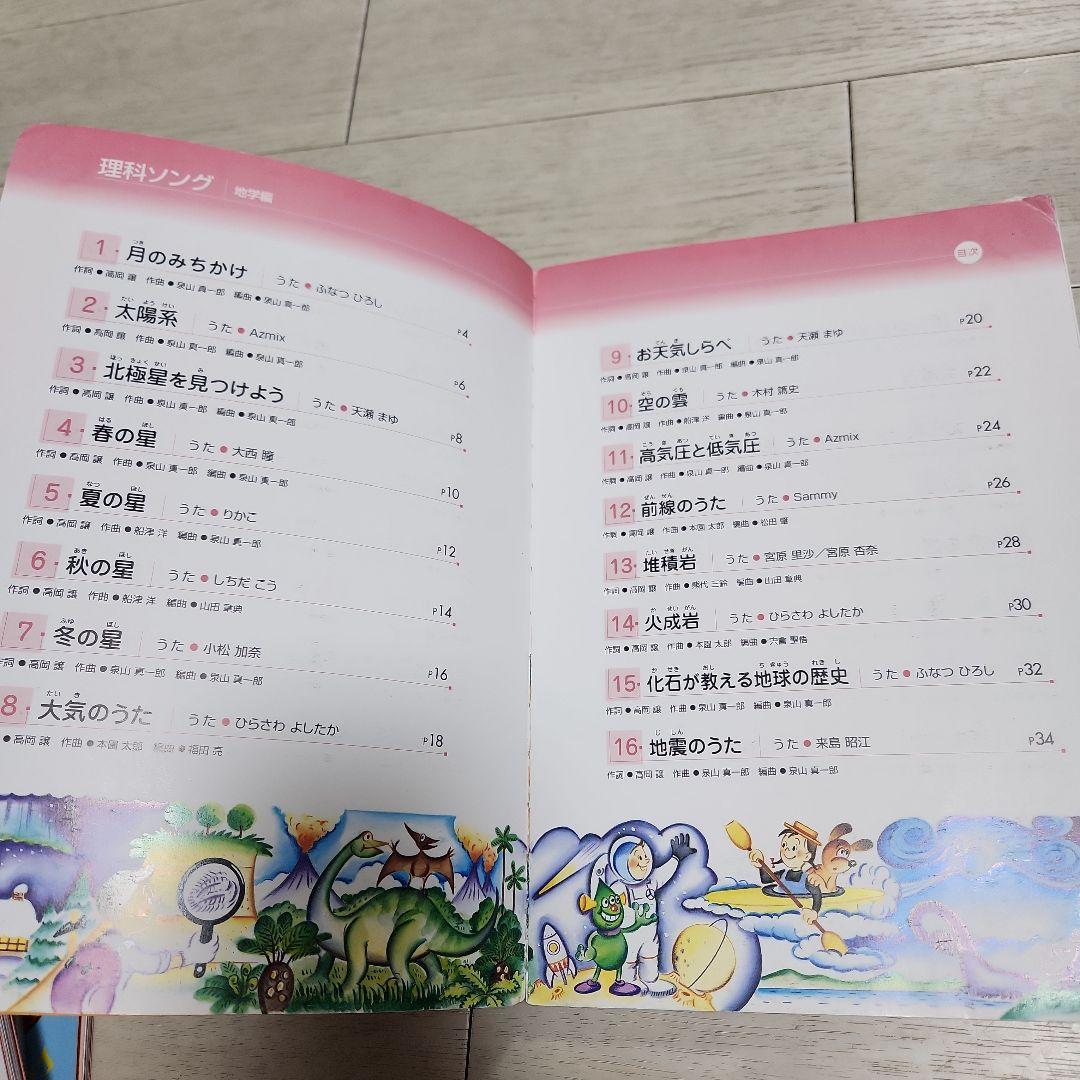 理科ソング 地学編
1 月のみちかけ うた●ふなつ ひろし
作詞●高岡 譲 作曲●泉山 真一郎 編曲●泉山 真一郎
P4
2 太陽系 うた●Azmix
作詞●高岡 譲 作曲●泉山 真一郎 編曲●泉山 真一郎
P6
3 北極星を見つけよう うた●天瀬 まゆ
作詞●高岡 譲 作曲●泉山 真一郎 編曲●泉山 真一郎
P8
4 春の星 うた●大西 瞳
作詞●高岡 譲 作曲●泉山 真一郎 編曲●泉山 真一郎
P10
5 夏の星 うた●りかこ
作詞●高岡 譲 作曲●船津 洋 編曲●泉山 真一郎
P12
6 秋の星 うた●しちだ こう
作詞●高岡 譲 作曲●船津 洋 編曲●山田 章典
P14
7 冬の星 うた●小松 加奈
作詞●高岡 譲 作曲●泉山 真一郎 編曲●泉山 真一郎
P16
8 大気のうた うた●ひらさわ よしたか
●高岡 譲 作曲●本園 太郎 編曲●福田 亮
P18
目次
9 お天気しらべ うた●天瀬 まゆ P20
作詞●高岡 譲 作曲●泉山 真一郎 編曲●泉山 真一郎
10 空の雲 うた●木村 篤史 P22
作詞●高岡 譲 作曲●船津 洋 編曲●泉山 真一郎
11 高気圧と低気圧 うた●Azmix P24
作詞●高岡 譲 作曲●泉山 真一郎 編曲●泉山 真一郎
12 前線のうた うた●Sammy P26
作詞●高岡 譲 作曲●本園 太郎 編曲●松田 肇
13 堆積岩 うた●宮原 里沙／宮原 杏奈 P28
作詞●高岡 譲 作曲●熊代 三鈴 編曲●山田 章典
14 火成岩 うた●ひらさわ よしたか P30
作詞●高岡 譲 作曲●本園 太郎 編曲●宍倉 聖悟
15 化石が教える地球の歴史 うた●ふなつ ひろし P32
作詞●高岡 譲 作曲●泉山 真一郎 編曲●泉山 真一郎
16 地震のうた うた●来島 昭江 P34
作詞●高岡 譲 作曲●泉山 真一郎 編曲●泉山 真一郎